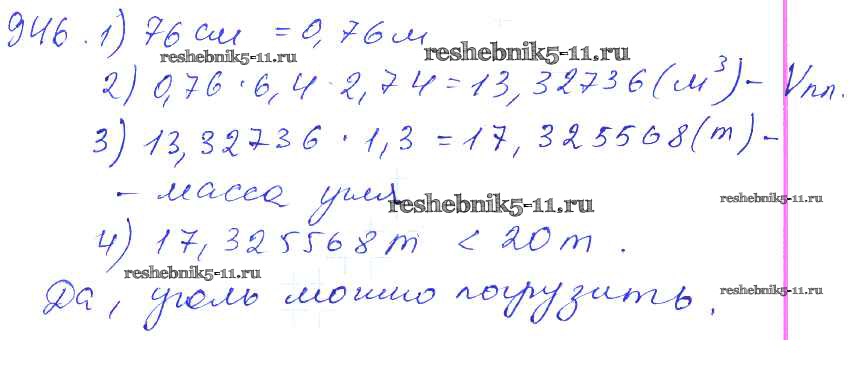 946. 1) 76 см = 0,76 м
reshebnik5-11.ru reshebnik5-11.ru
2) 0,76 · 6,4 · 2,74 = 13,32736 (м³) - Vпл.
3) 13,32736 · 1,3 = 17,325568 (т) -
- масса угля
reshebnik5-11.ru reshebnik5-11.ru
4) 17,325568 т < 20 т.
reshebnik5-11.ru
Да, уголь можно погрузить.
reshebnik5-11.ru